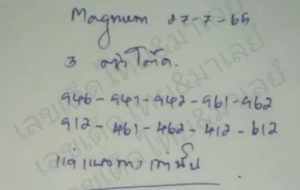 Magnum 27-7-65
3 ตัวโต๊ด
946-941-942-961-962
912-461-462-412-612
เลขเด็ดไทย&มาเลย์